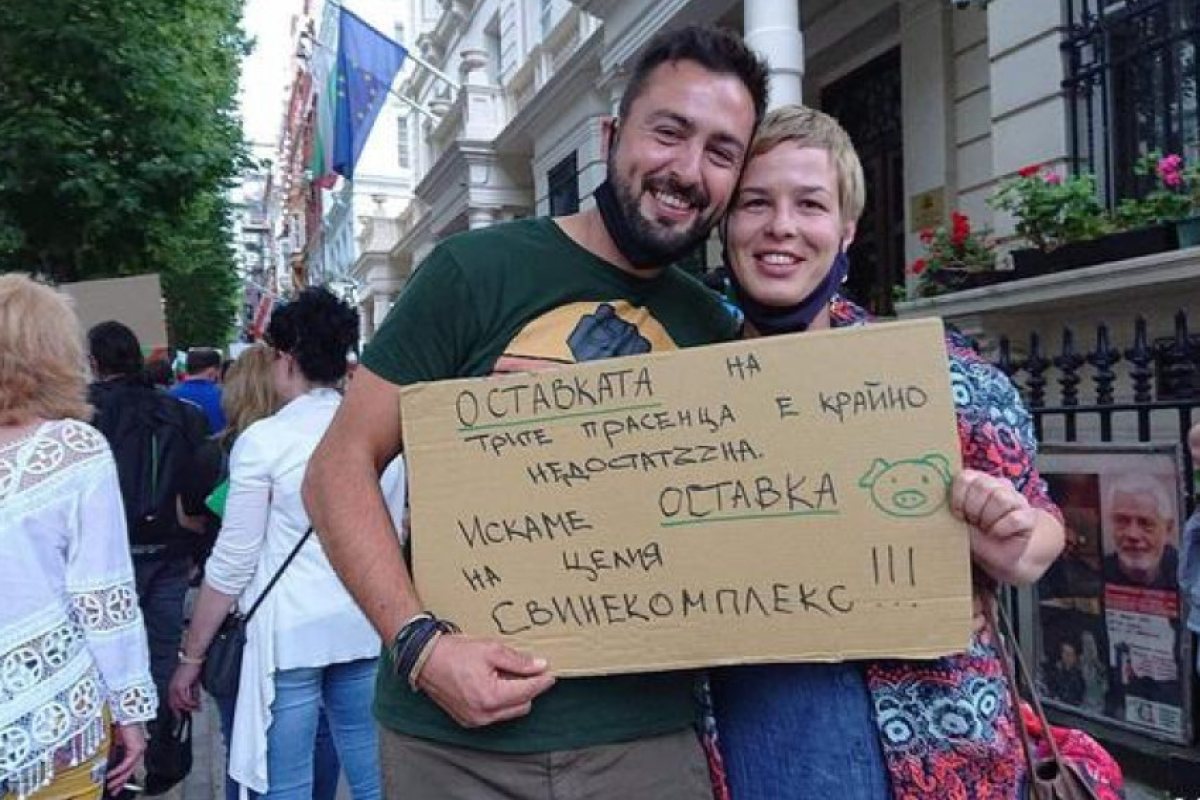 ОСТАВКАТА НА
ТРИТЕ ПРАСЕНЦА Е КРАЙНО
НЕДОСТАТЪЧНА.
ИСКАМЕ ОСТАВКА
НА ЦЕЛИЯ
СВИНЕКОМПЛЕКС !!!